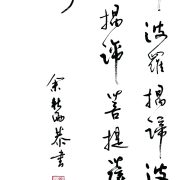 波羅揭諦波
揭諦菩提薩
余秋雨恭書